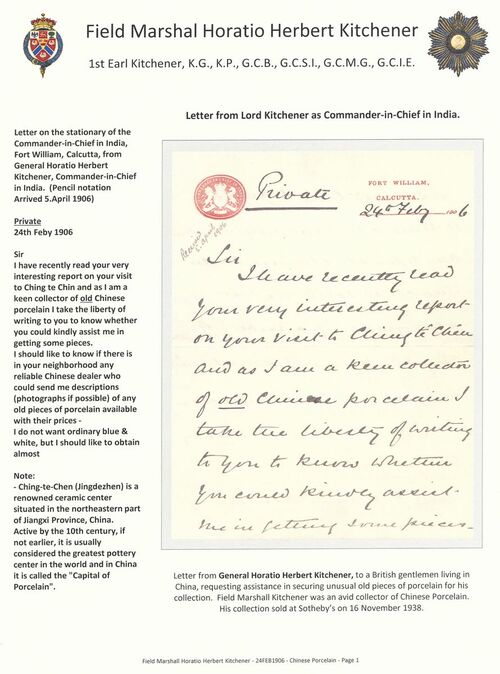 Field Marshal Horatio Herbert Kitchener
1st Earl Kitchener, K.G., K.P., G.C.B., G.C.S.I., G.C.M.G., G.C.I.E.
Letter from Lord Kitchener as Commander-in-Chief in India.
Letter on the stationary of the
Commander-in-Chief in India,
Fort William, Calcutta, from
General Horatio Herbert
Kitchener, Commander-in-Chief
in India. (Pencil notation
Arrived 5.April 1906)
Private
24th Feby 1906
Sir
I have recently read your very
interesting report on your visit
to Ching te Chin and as I am a
keen collector of old Chinese
porcelain I take the liberty of
writing to you to know whether
you could kindly assist me in
getting some pieces.
I should like to know if there is
in your neighborhood any
reliable Chinese dealer who
could send me descriptions
(photographs if possible) of any
old pieces of porcelain available
with their prices -
I do not want ordinary blue &
white, but I should like to obtain
almost
Note:
- Ching-te-Chen (Jingdezhen) is a
renowned ceramic center
situated in the northeastern part
of Jiangxi Province, China.
Active by the 10th century, if
not earlier, it is usually
considered the greatest pottery
center in the world and in China
it is called the "Capital of
Porcelain".
Private
FORT WILLIAM,
CALCUTTA.
24th Feby 1906
Received
5. April
1906
Sir
I have recently read
your very interesting report
on your visit to Ching te Chen
and as I am a keen collector
of old Chinese porcelain I
take the liberty of writing
to you to know whether
you could kindly assist
me in getting some pieces-
Letter from General Horatio Herbert Kitchener, to a British gentlemen living in
China, requesting assistance in securing unusual old pieces of porcelain for his
collection. Field Marshall Kitchener was an avid collector of Chinese Porcelain.
His collection sold at Sotheby's on 16 November 1938.
Field Marshall Horatio Herbert Kitchener - 24FEB1906 - Chinese Porcelain - Page 1